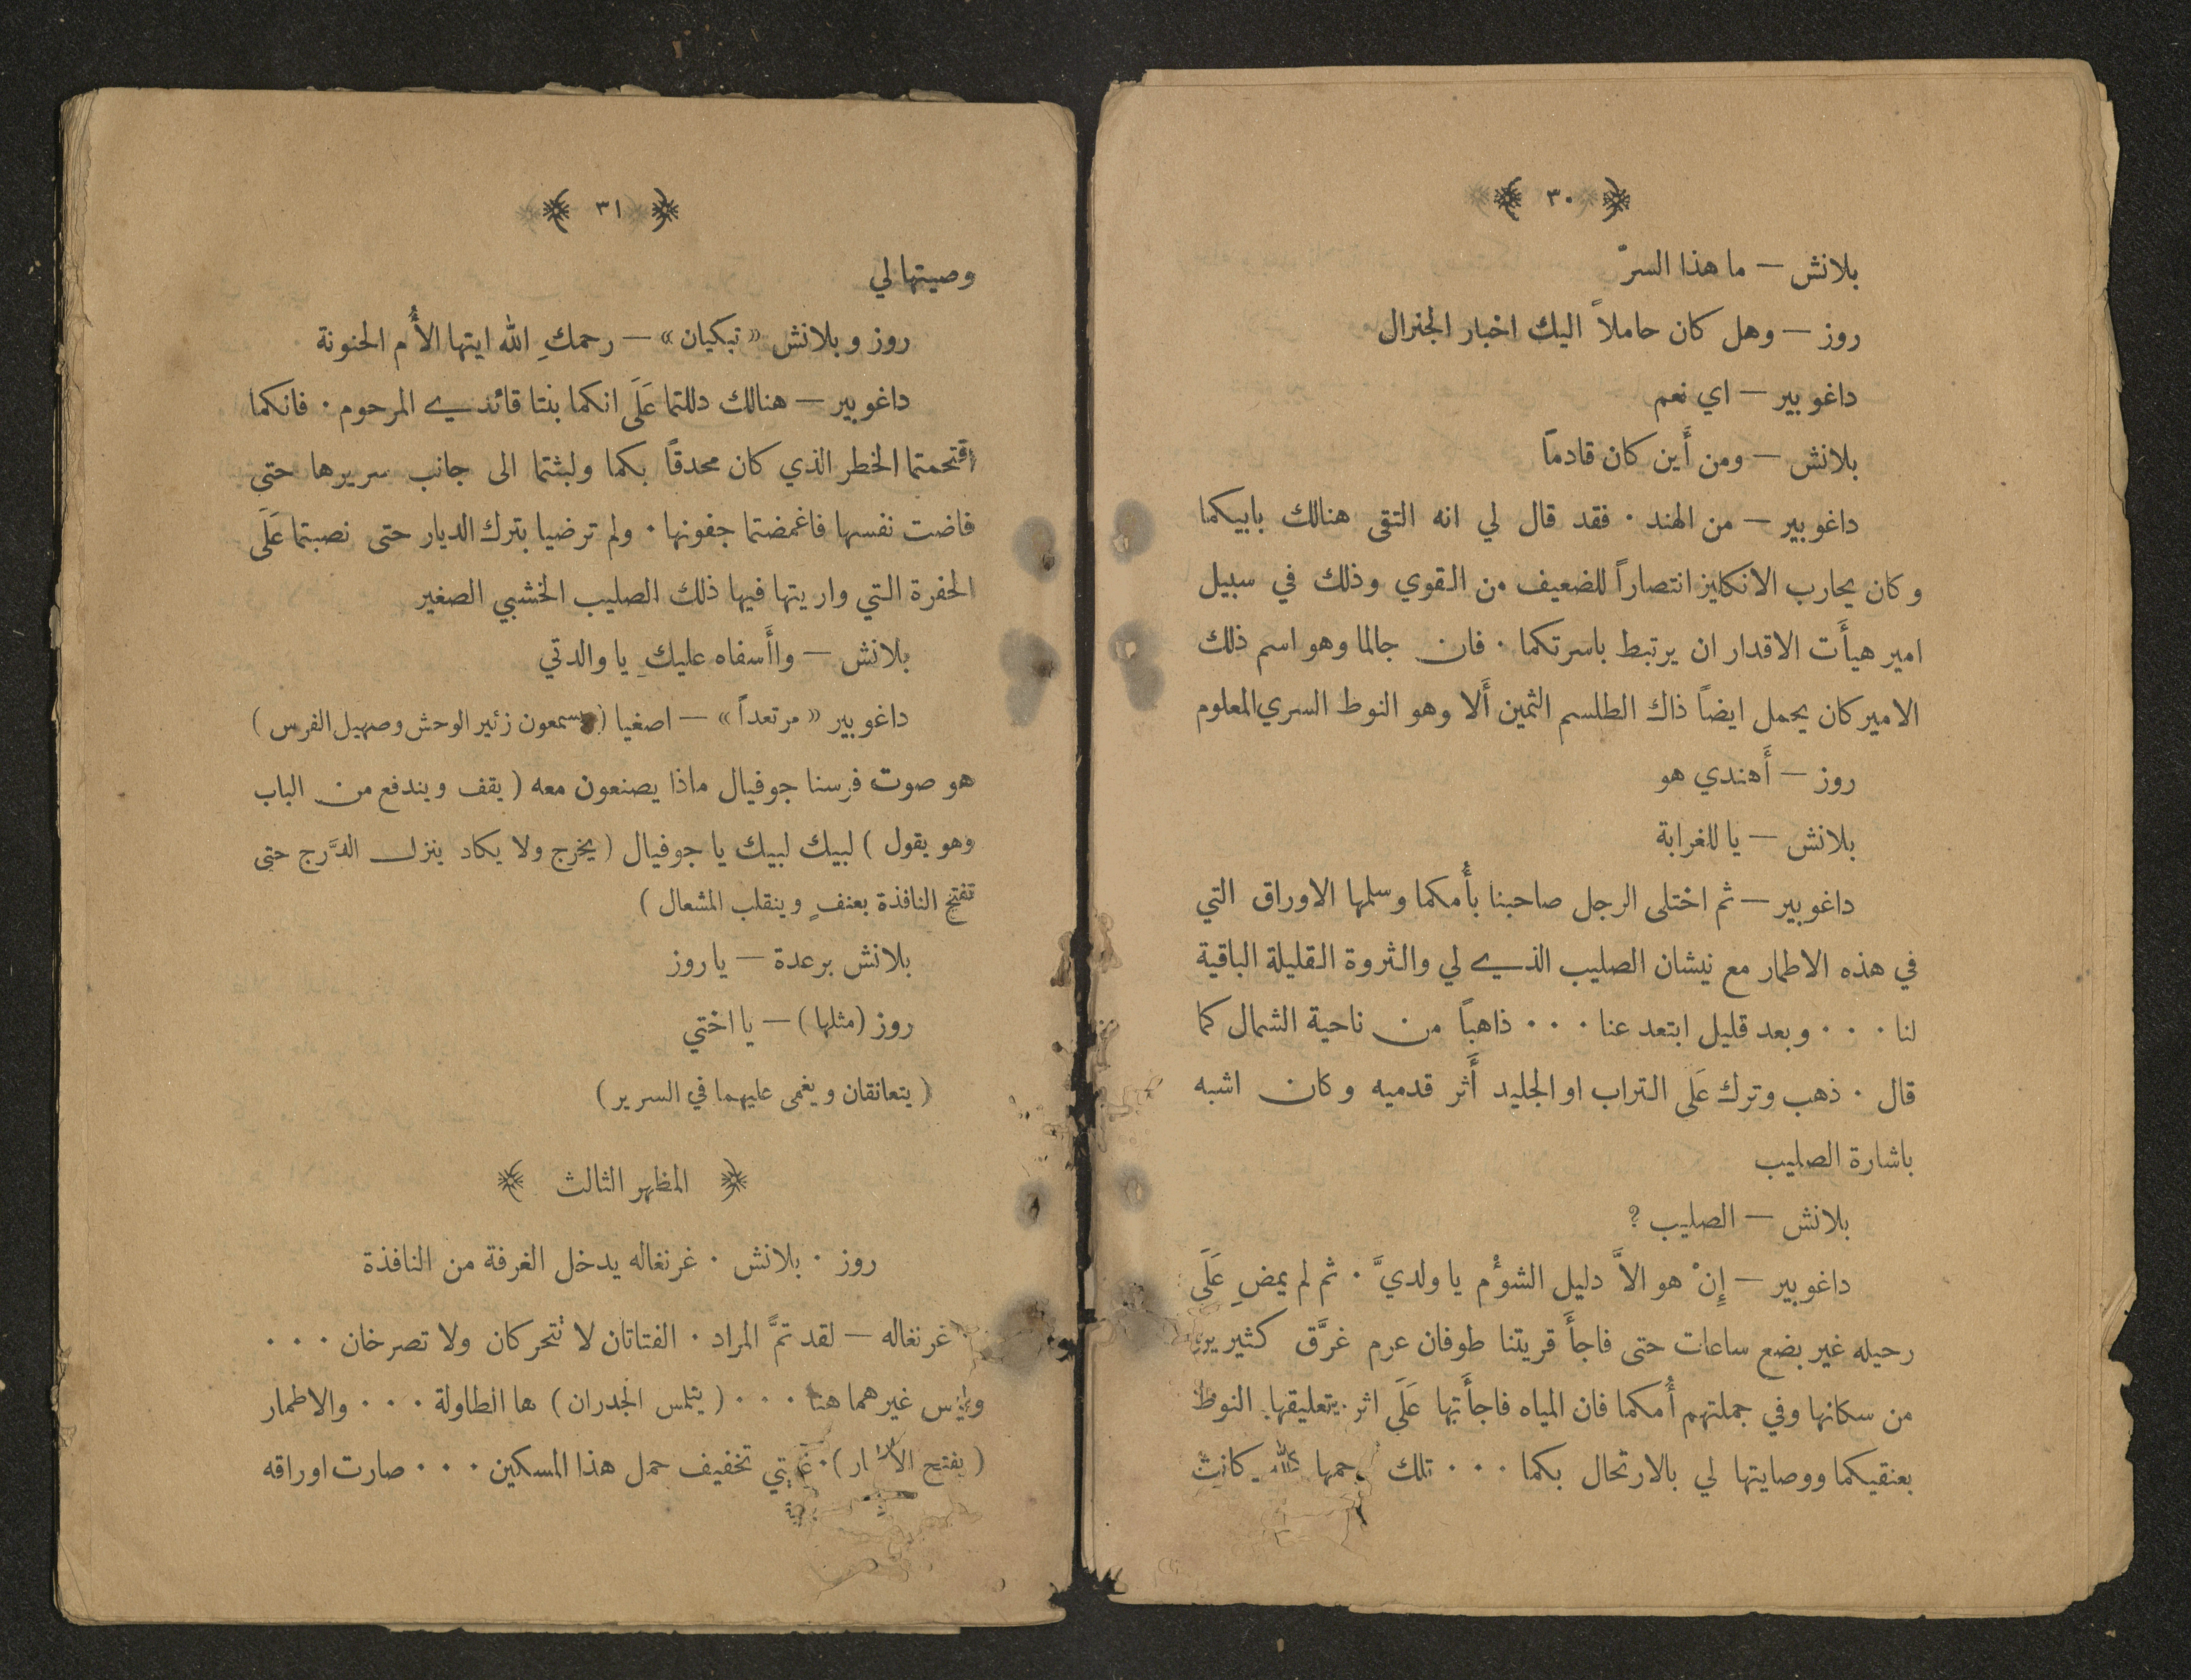 ٣٠
بلانش — ما هذا السرّ
روز — وهل كان حاملاً اليك اخبار الجنرال
داغوبير — اي نعم
بلانش — ومن أَين كان قادماً
داغوبير — من الهند ٠ فقد قال لي انه التقى هنالك بابيكما
وكان يحارب الانكليز انتصاراً للضعيف من القوي وذلك في سبيل
امير هيأَت الاقدار ان يرتبط باسرتكما ٠ فان جالما وهو اسم ذلك
الامير كان يحمل ايضاً ذاك الطلسم الثمين أَلا وهو النوط السري المعلوم
روز — أَهندي هو
بلانش — يا للغرابة
داغوبير — ثم اختلى الرجل صاحبنا بأُمكما وسلمها الاوراق التي
في هذه الاطمار مع نيشان الصليب الذي لي والثروة القليلة الباقية
لنا ٠ ٠ ٠ وبعد قليل ابتعد عنا ٠ ٠ ٠ ذاهباً من ناحية الشمال كما
قال ٠ ذهب وترك عَلَى التراب او الجليد أَثر قدميه وكان اشبه
باشارة الصليب
بلانش — الصليب ؟
داغوبير — إِنْ هو الاَّ دليل الشوءْم يا ولديَّ ٠ ثم لم يمضِ عَلَى
رحيله غير بضع ساعات حتى فاجأَ قريتنا طوفان عرم غرَّق كثيرين
من سكانها وفي جملتهم أُمكما فان المياه فاجأَتها عَلَى اثر تعليقها النوط
بعنقيكما ووصايتها لي بالارتحال بكما ٠ ٠ ٠ تلك رحمها الله كانت
٣١
وصيتها لي
روز وبلانش «تبكيان» — رحمكِ الله ايتها الأُم الحنونة
داغوبير — هنالك دللتما عَلَى انكما بنتا قائدي المرحوم ٠ فانكما
اقتحمتما الخطر الذي كان محدقاً بكما ولبثتما الى جانب سريرها حتى
فاضت نفسها فاغمضتما جفونها ٠ ولم ترضيا بترك الديار حتى نصبتما عَلَى
الحفرة التي واريتها فيها ذلك الصليب الخشبي الصغير
بلانش — واأَسفاه عليكِ يا والدتي
داغوبير «مرتعداً» — اصغيا (يسمعون زئير الوحش وصهيل الفرس)
هو صوت فرسنا جوفيال ماذا يصنعون معه (يقف ويندفع من الباب
وهو يقول) لبيك لبيك يا جوفيال (يخرج ولا يكاد ينزل الدَّرج حتى
تفتح النافذة بعنفٍ وينقلب المشعال)
بلانش برعدة — يا روز
روز (مثلها) — يا اختي
(يتعانقان ويغمى عليهما في السرير)
المظهر الثالث
روز ٠ بلانش ٠ غرنغاله يدخل الغرفة من النافذة
غرنغاله — لقد تمَّ المراد ٠ الفتاتان لا نتحركان ولا تصرخان ٠ ٠ ٠
وليس غيرهما هنا ٠ ٠ ٠ (يتلمس الجدران) ها الطاولة ٠ ٠ ٠ والاطمار
(يفتح الاطمار) ٠ غايتي تخفيف حمل هذا المسكين ٠ ٠ ٠ صارت اوراقه